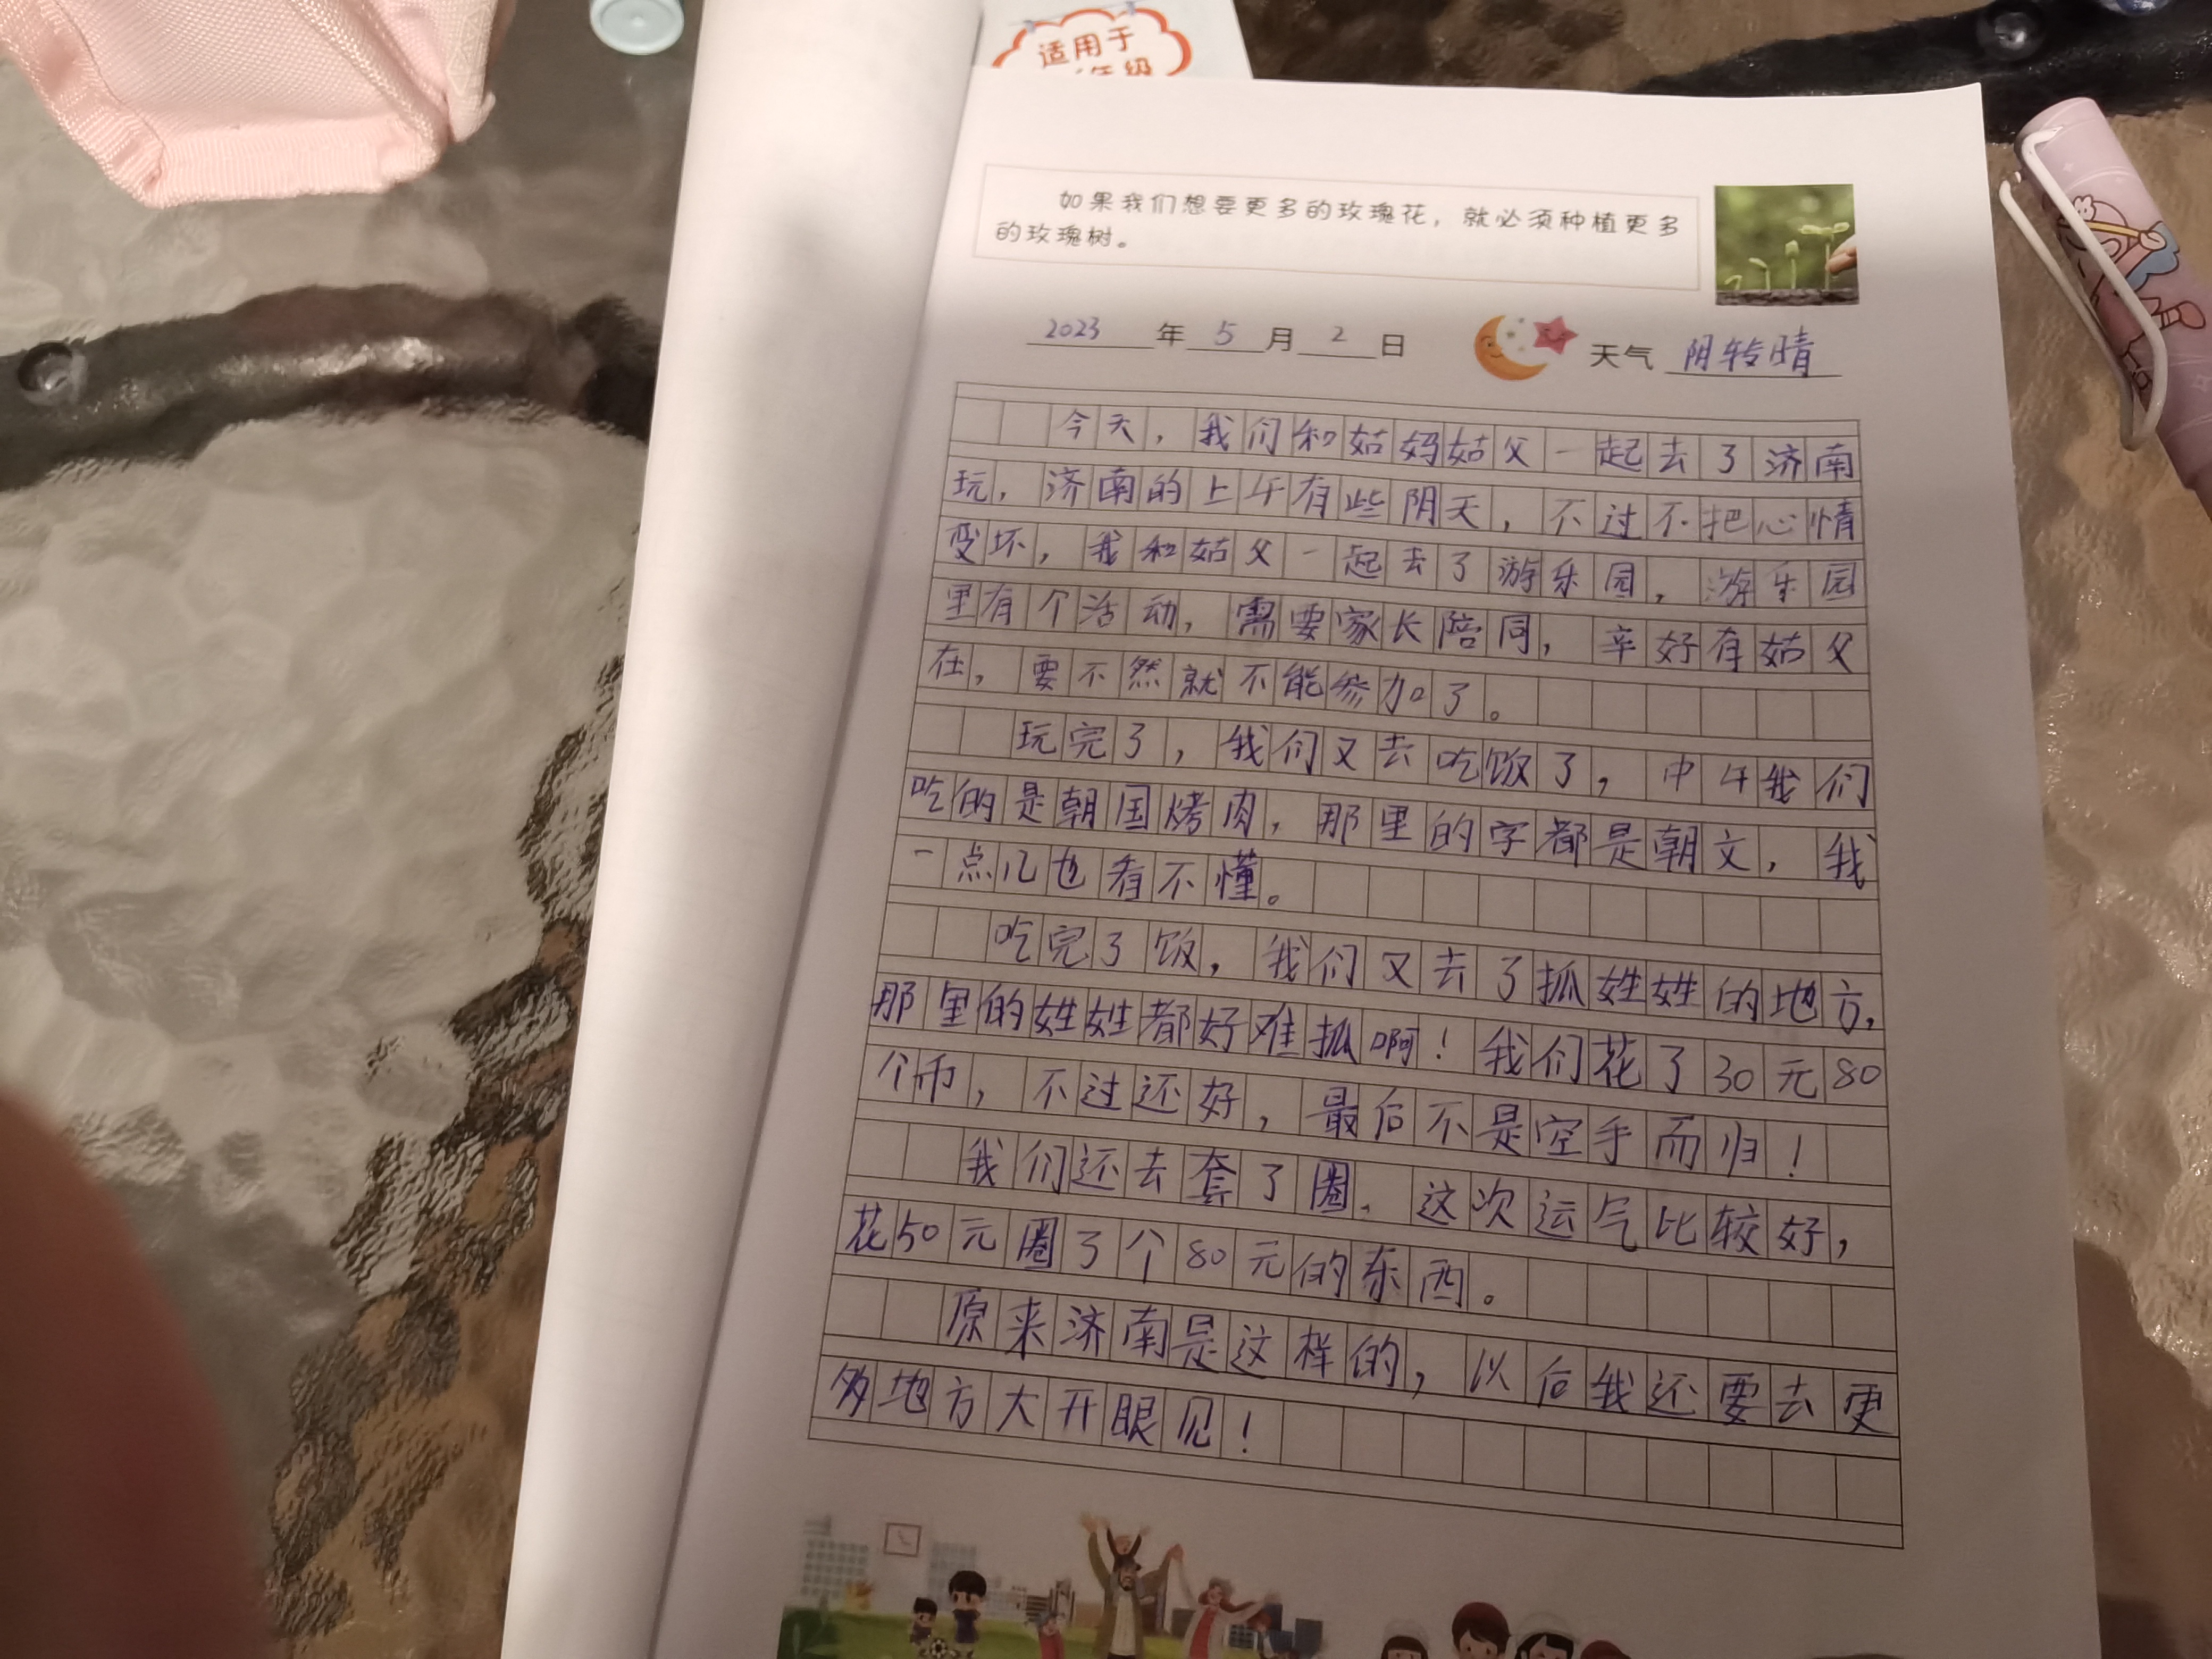 适用于
年级
如果我们想要更多的玫瑰花，就必须种植更多
的玫瑰树。
2023年5月2日 天气 阴转晴
今天，我们和姑妈姑父一起去了济南
玩，济南的上午有些阴天，不过不把心情
变坏，我和姑父一起去了游乐园，游乐园
里有个活动，需要家长陪同，辛好有姑父
在，要不然就不能参加了。
玩完了，我们又去吃饭了，中午我们
吃的是朝国烤肉，那里的字都是朝文，我
一点儿也看不懂。
吃完了饭，我们又去了抓姓姓的地方，
那里的姓姓都好难抓啊！我们花了30元80
个币，不过还好，最后不是空手而归！
我们还去套了圈，这次运气比较好，
花50元圈了个80元的东西。
原来济南是这样的，以后我还要去更
多地方大开眼见！